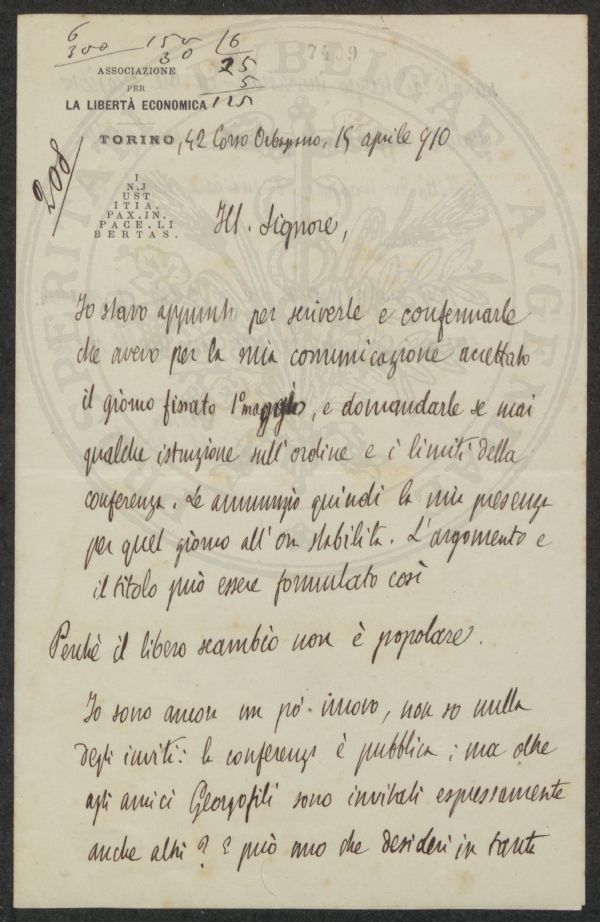 6
300 150 16
30 25
5
125
7409
ASSOCIAZIONE
PER
LA LIBERTÀ ECONOMICA
TORINO, 42 Corso Orbassano, 15 aprile 910
208
I
N.J
UST
ITIA.
PAX.IN.
PACE.LI
BERTAS.
Ill. Signore,
Io stavo appunto per scriverle e confermarle
che avevo per la mia comunicazione accettato
il giorno fissato 1° maggio, e domandarle se mai
qualche istruzione sull'ordine e i limiti della
conferenza. Le annunzio quindi la mia presenza
per quel giorno all'ora stabilita. L'argomento e
il titolo può essere formulato così
Perchè il libero scambio non è popolare.
Io sono ancora un pò nuovo, non so nulla
degli inviti: la conferenza è pubblica; ma oltre
agli amici Georgofili sono invitati espressamente
anche altri? E può uno che desideri